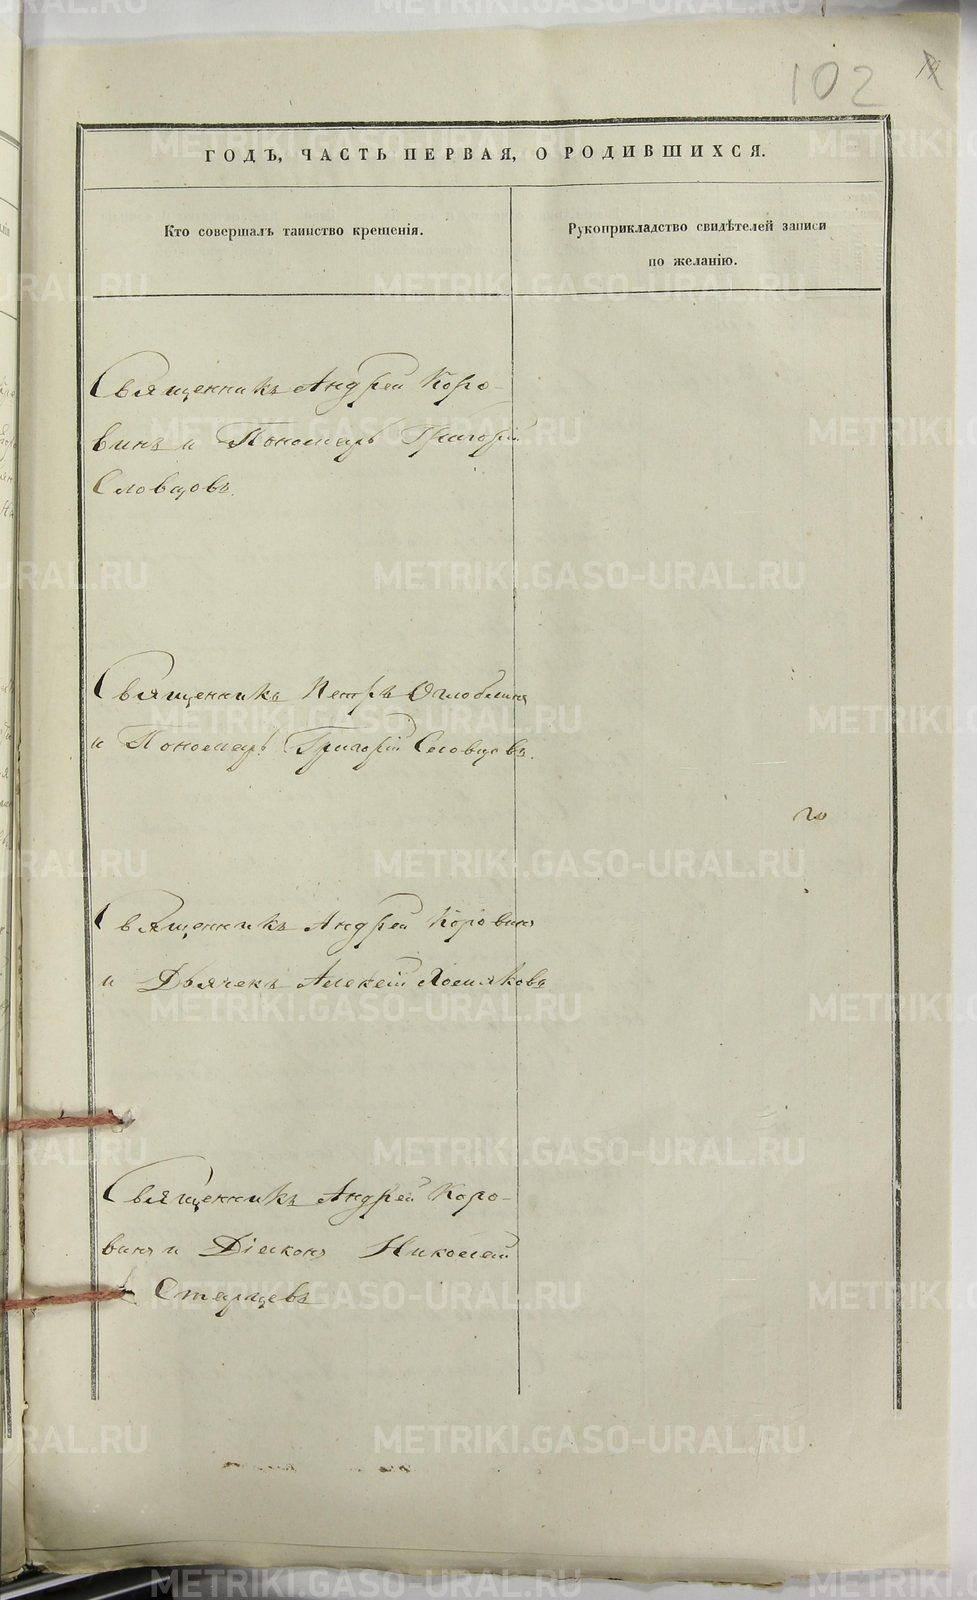 102
ГОДЪ, ЧАСТЬ ПЕРВАЯ, О РОДИВШИХСЯ.
Кто совершалъ таинство крещенія.
Рукоприкладство свидѣтелей записи
по желанію.
Священникъ Андрей Коро-
винъ и Пономарь Григорій
Словцовъ.
Священникъ Петръ Оглоблинъ
и Пономарь Григорій Словцовъ.
Священникъ Андрей Коровинъ
и Дьячекъ Алексій Хомяковъ
Священникъ Андрей Коро-
винъ и Діаконъ Николай
Старцевъ
METRIKI.GASO-URAL.RU